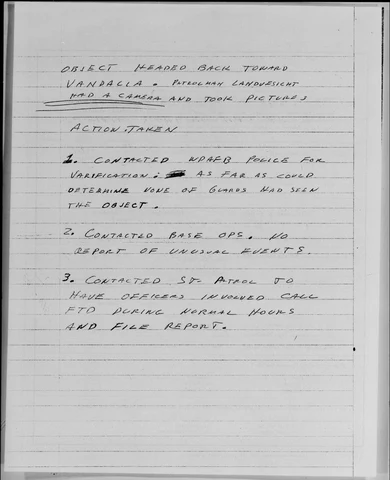 OBJECT HEADED BACK TOWARD
VANDALLA. PATROLMAN LANDVESIGHT
HAD A CAMERA AND TOOK PICTURES
ACTION TAKEN
1. CONTACTED WPAFB POLICE FOR
VARIFICATION: AS FAR AS COULD
DETERMINE NONE OF GUARDS HAD SEEN
THE OBJECT.
2. CONTACTED BASE OPS. NO
REPORT OF UNUSUAL EVENTS.
3. CONTACTED ST. PATROL TO
HAVE OFFICERS INVOLVED CALL
FTD DURING NORMAL HOURS
AND FILE REPORT.